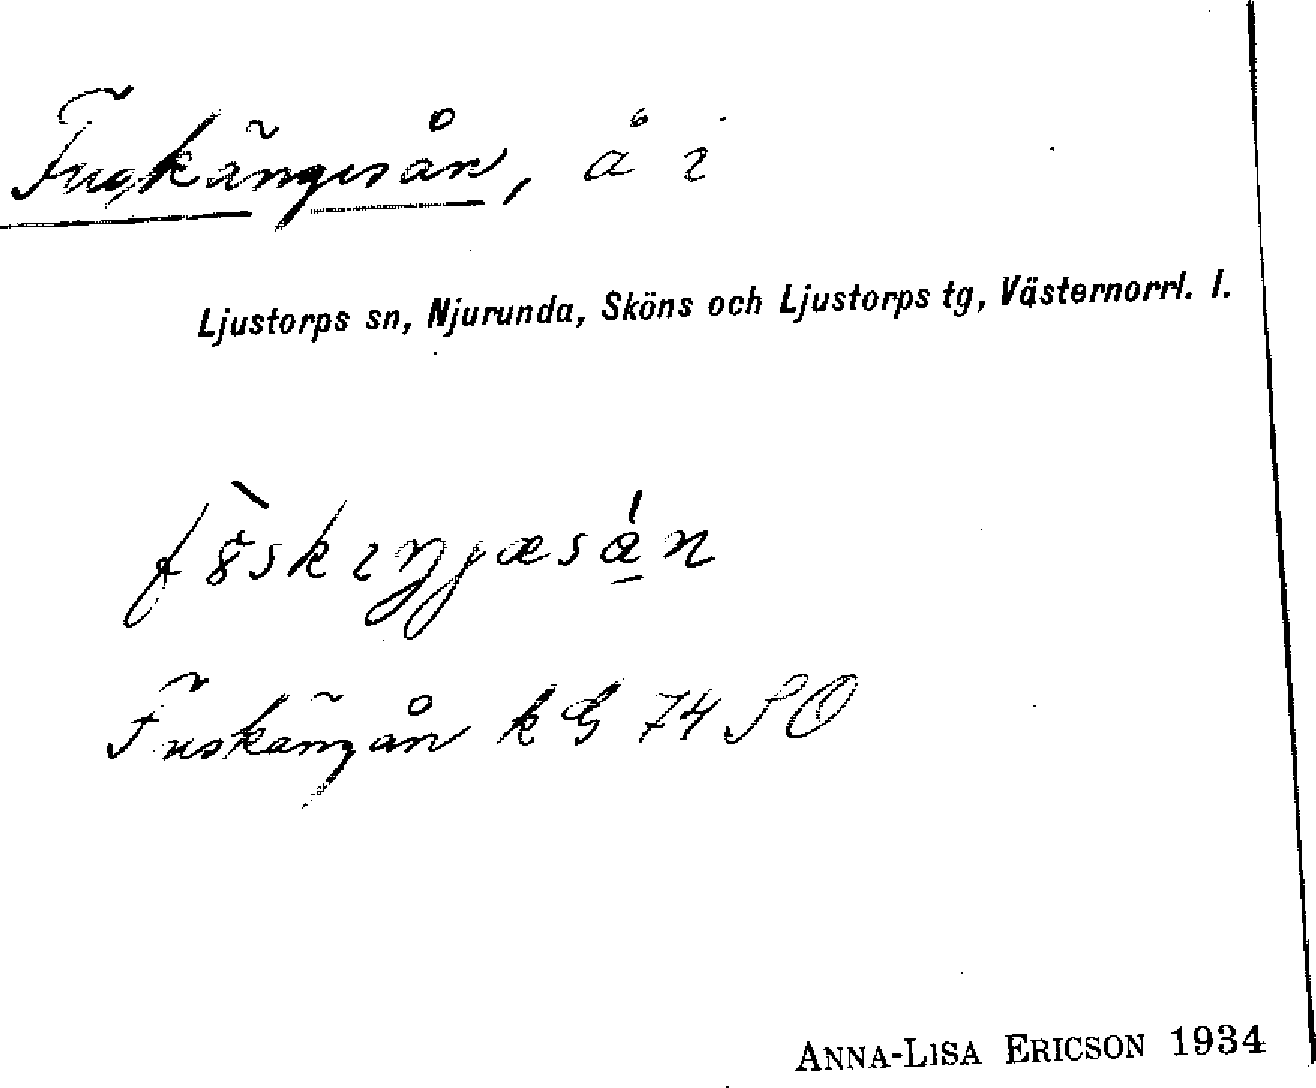 Fuskängesån, å i
Ljustorps sn, Njurunda, Sköns och Ljustorps tg, Västernorrl. l.
Fuskängån k G 74 SO
ANNA-LISA ERICSON 1934